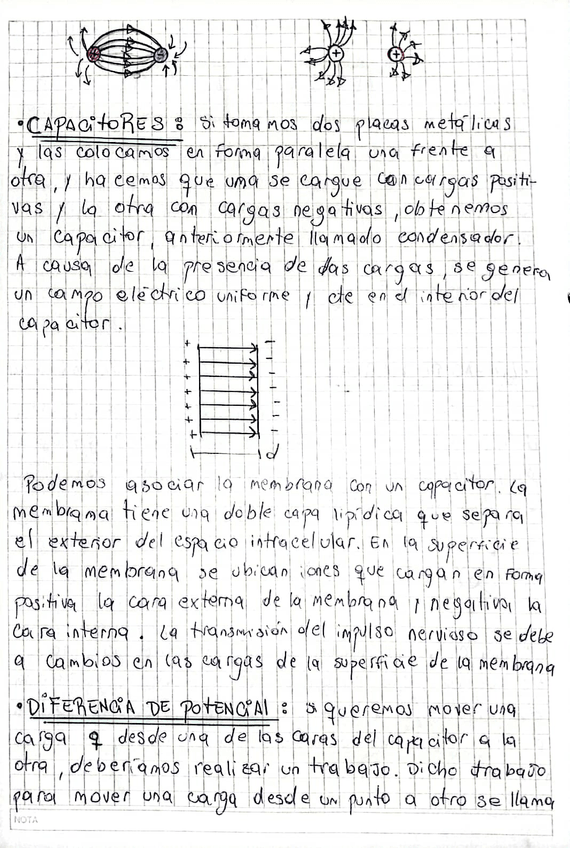 •CAPACitORES: Si tomamos dos placas metálicas
y las colocamos en forma paralela una frente a
otra, y hacemos que una se cargue con cargas positi-
vas y la otra con cargas negativas, obtenemos
un capacitor, anteriormente llamado condensador.
A causa de la presencia de das cargas, se genera
un campo eléctrico uniforme y cte en el interior del
capacitor.
+ -
+ -
+ -
+ -
+ -
+ -
+ -
d
Podemos asociar la membrana con un capacitor. La
membrana tiene una doble capa lipídica que separa
el exterior del espacio intracelular. En la superficie
de la membrana se ubican iones que cargan en forma
positiva la cara externa de la membrana y negativa la
cara interna. La transmisión del impulso nervioso se debe
a cambios en las cargas de la superficie de la membrana
•DiFERENCiA DE POtENCiAl: si queremos mover una
carga q desde una de las caras del capacitor a la
otra, deberíamos realizar un trabajo. Dicho trabajo
para mover una carga desde un punto a otro se llama
NOTA